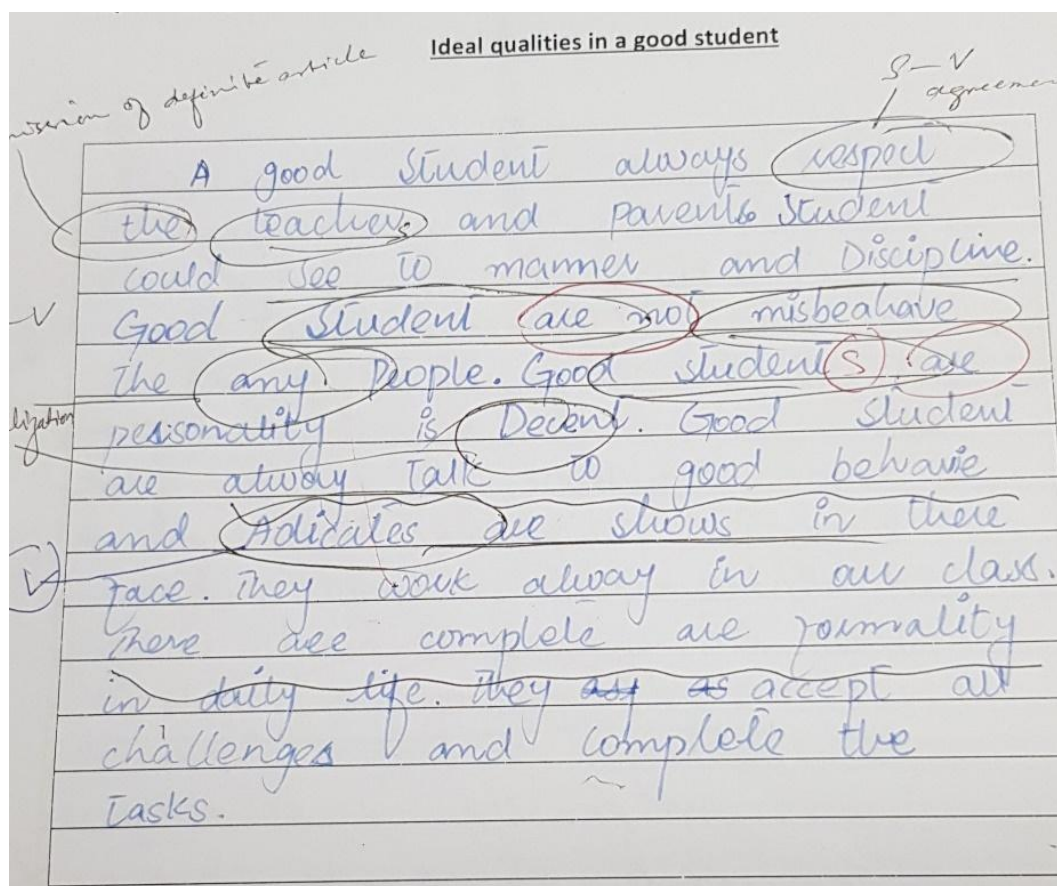 Ideal qualities in a good student
mission of definite article
S-V
agreemen
A good student always respect
the teachers and parents student
could see to manner and Discipline.
-V
Good student are not misbeahave
the any People. Good students are
lization
pesisonality is Decent. Good student
are alway talk to good behavie
and Adicates are shows in there
V
face. They work alway in our class.
There are complete are formality
in daily life. They as accept all
challenges and complete the
tasks.